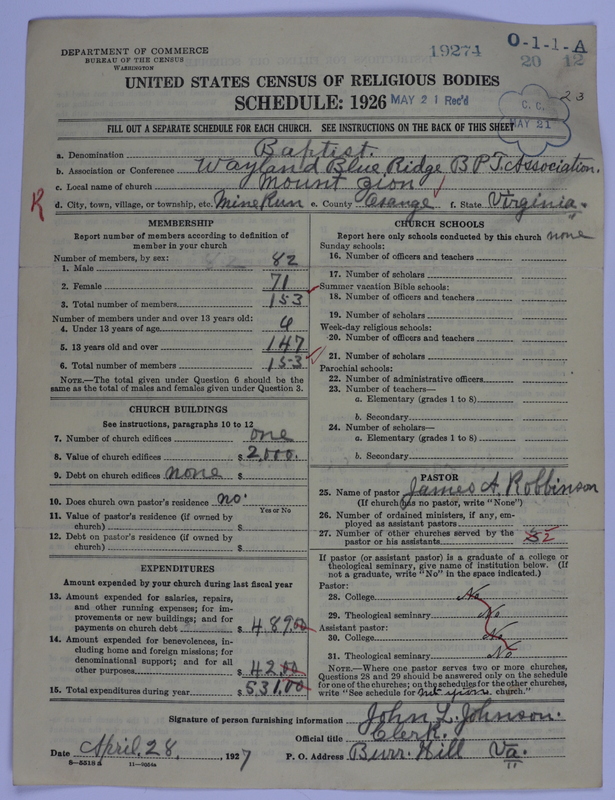 DEPARTMENT OF COMMERCE
BUREAU OF THE CENSUS
WASHINGTON
19274
O-1-1-A
20 12
UNITED STATES CENSUS OF RELIGIOUS BODIES
SCHEDULE: 1926
MAY 21 Rec'd
C. C.
MAY 21
23
FILL OUT A SEPARATE SCHEDULE FOR EACH CHURCH. SEE INSTRUCTIONS ON THE BACK OF THIS SHEET
a. Denomination Baptist.
b. Association or Conference Wayland Blue Ridge B P T. Association.
c. Local name of church Mount Zion
R
d. City, town, village, or township, etc. Mine Run e. County Orange f. State Virginia.
MEMBERSHIP
Report number of members according to definition of
member in your church
Number of members, by sex:
1. Male 82
2. Female 71
3. Total number of members 153
Number of members under and over 13 years old:
4. Under 13 years of age 6
5. 13 years old and over 147
6. Total number of members 153
NOTE.—The total given under Question 6 should be the
same as the total of males and females given under Question 3.
CHURCH BUILDINGS
See instructions, paragraphs 10 to 12
7. Number of church edifices one
8. Value of church edifices $ 2,000.
9. Debt on church edifices none $
10. Does church own pastor's residence no.
Yes or No
11. Value of pastor's residence (if owned by
church) $
12. Debt on pastor's residence (if owned by
church) $
EXPENDITURES
Amount expended by your church during last fiscal year
13. Amount expended for salaries, repairs,
and other running expenses; for im-
provements or new buildings; and for
payments on church debt $ 489.00
14. Amount expended for benevolences, in-
cluding home and foreign missions; for
denominational support; and for all
other purposes $ 42.00
15. Total expenditures during year $ 531.00
CHURCH SCHOOLS
Report here only schools conducted by this church none
Sunday schools:
16. Number of officers and teachers
17. Number of scholars
Summer vacation Bible schools:
18. Number of officers and teachers
19. Number of scholars
Week-day religious schools:
20. Number of officers and teachers
21. Number of scholars
Parochial schools:
22. Number of administrative officers
23. Number of teachers—
a. Elementary (grades 1 to 8)
b. Secondary
24. Number of scholars—
a. Elementary (grades 1 to 8)
b. Secondary
PASTOR
25. Name of pastor James A. Robbinson
(If church has no pastor, write "None")
26. Number of ordained ministers, if any, em-
ployed as assistant pastors
27. Number of other churches served by the
pastor or his assistants
If pastor (or assistant pastor) is a graduate of a college or
theological seminary, give name of institution below. (If
not a graduate, write "No" in the space indicated.)
Pastor:
28. College No
29. Theological seminary No
Assistant pastor:
30. College No
31. Theological seminary No
NOTE.—Where one pastor serves two or more churches,
Questions 28 and 29 should be answered only on the schedule
for one of the churches; on the schedules for the other churches,
write "See schedule for church."
Signature of person furnishing information John L. Johnson.
Official title Clerk.
Date April. 28, 1927 P. O. Address Burr Hill Va.
8—5518 a